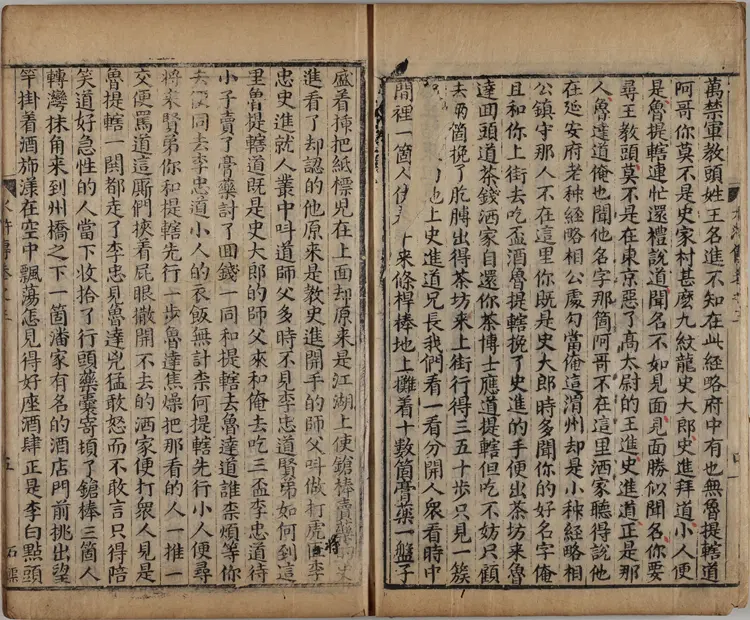 萬禁軍教頭姓王名進不知在此經略府中有也無魯提轄道
阿哥你莫不是史家村甚麽九紋龍史大郎史進拜道小人便
是魯提轄連忙還禮說道聞名不如見面見面勝似聞名你要
尋王教頭莫不是在東京惡了高太尉的王進史進道正是那
人魯達道俺也聞他名字那箇阿哥不在這里洒家聽得說他
在延安府老种經略相公處勾當俺這渭州却是小种經略相
公鎮守那人不在這里你既是史大郎時多聞你的好名字俺
且和你上街去吃盃酒魯提轄挽了史進的手便出茶坊來魯
達回頭道茶錢洒家自還你茶博士應道提轄但吃不妨只顧
去兩箇挽了胳膊出得茶坊來上街行得三五十步只見一簇
也上史進道兄長我們看一看分開人衆看時中
間裡一箇人仗來條桿棒地上攤着十數箇膏藥一盤子
盛着插把紙標兒在上面却原來是江湖上使鎗棒賣藥史
進看了却認的他原來是教史進開手的師父叫做打虎將李
忠史進就人叢中叫道師父多時不見李忠道賢弟如何到這
里魯提轄道既是史大郎的師父來和俺去吃三盃李忠道待
小子賣了膏藥討了回錢一同和提轄去魯達道誰柰煩等你
去便同去李忠道小人的衣飯無計柰何提轄先行小人便尋
將來賢弟你和提轄先行一步魯達焦燥把那看的人一推一
交便罵道這廝們挾着屁眼撒開不去的洒家便打衆人見是
魯提轄一鬨都走了李忠見魯達兇猛敢怒而不敢言只得陪
笑道好急性的人當下收拾了行頭藥囊寄頓了鎗棒三箇人
轉灣抹角來到州橋之下一箇潘家有名的酒店門前挑出望
竿掛着酒斾漾在空中飄蕩怎見得好座酒肆正是李白點頭
水滸傳卷之三 五